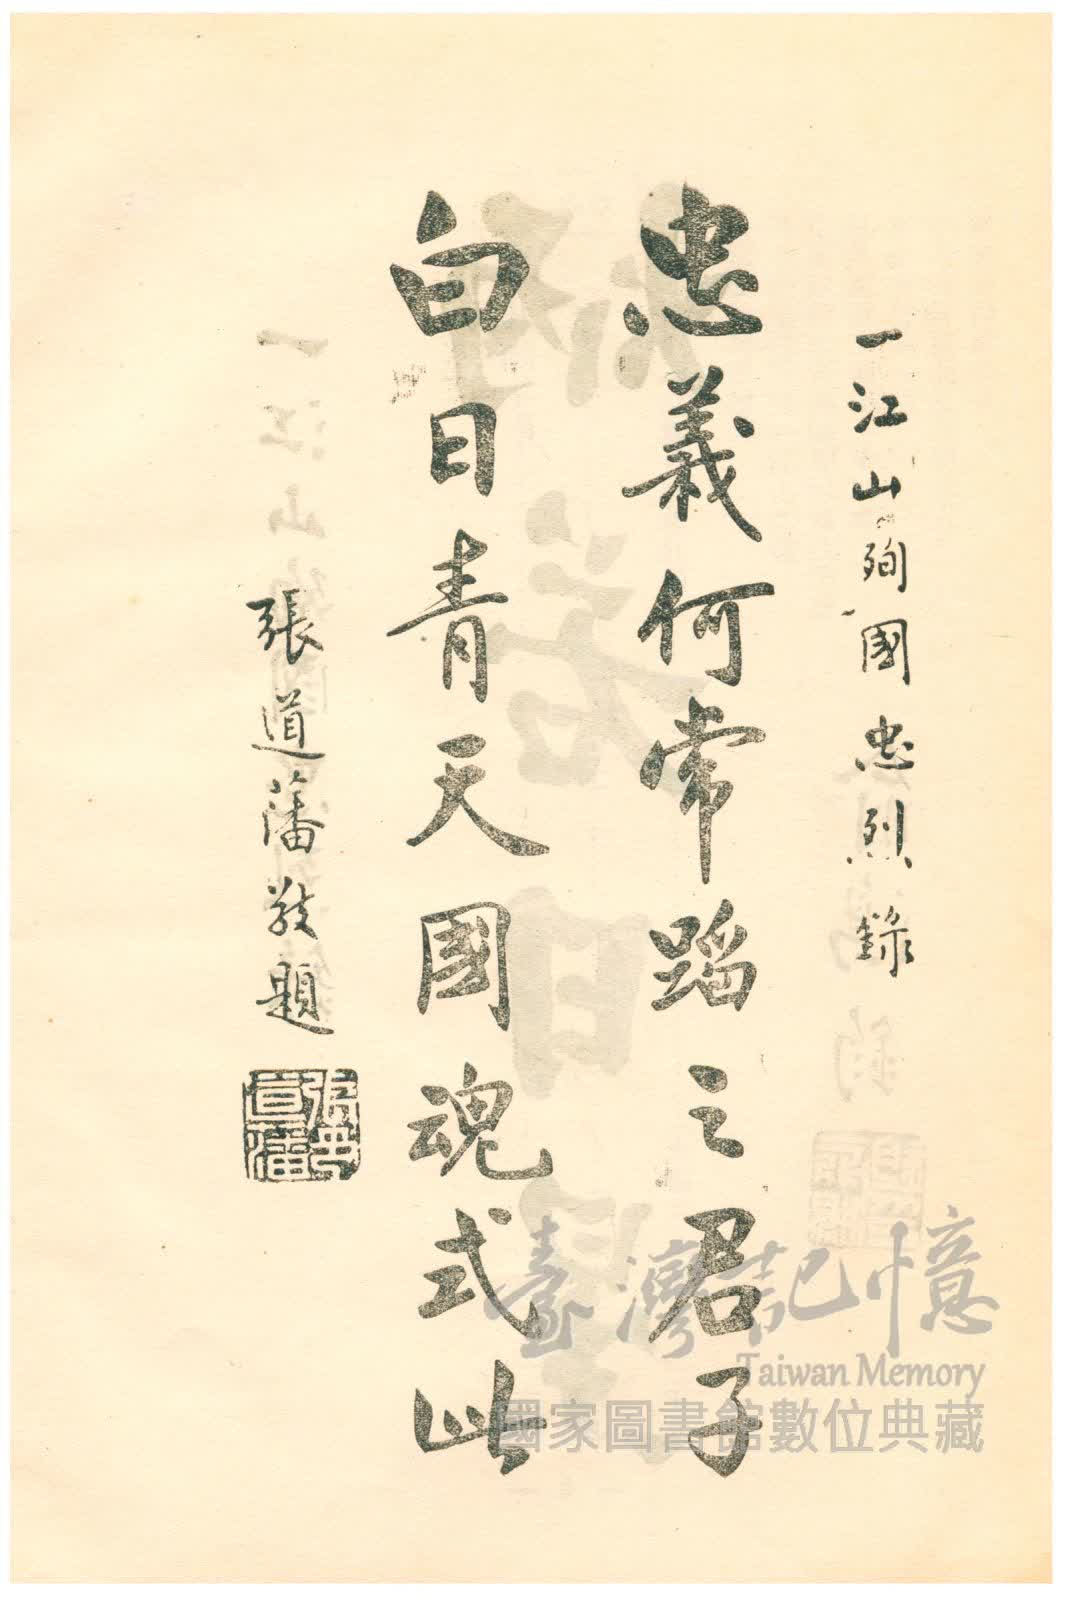 一江山殉國忠烈錄
忠義何常蹈之君子
白日青天國魂式此
張道藩敬題
張道藩
臺灣記憶
Taiwan Memory
國家圖書館數位典藏